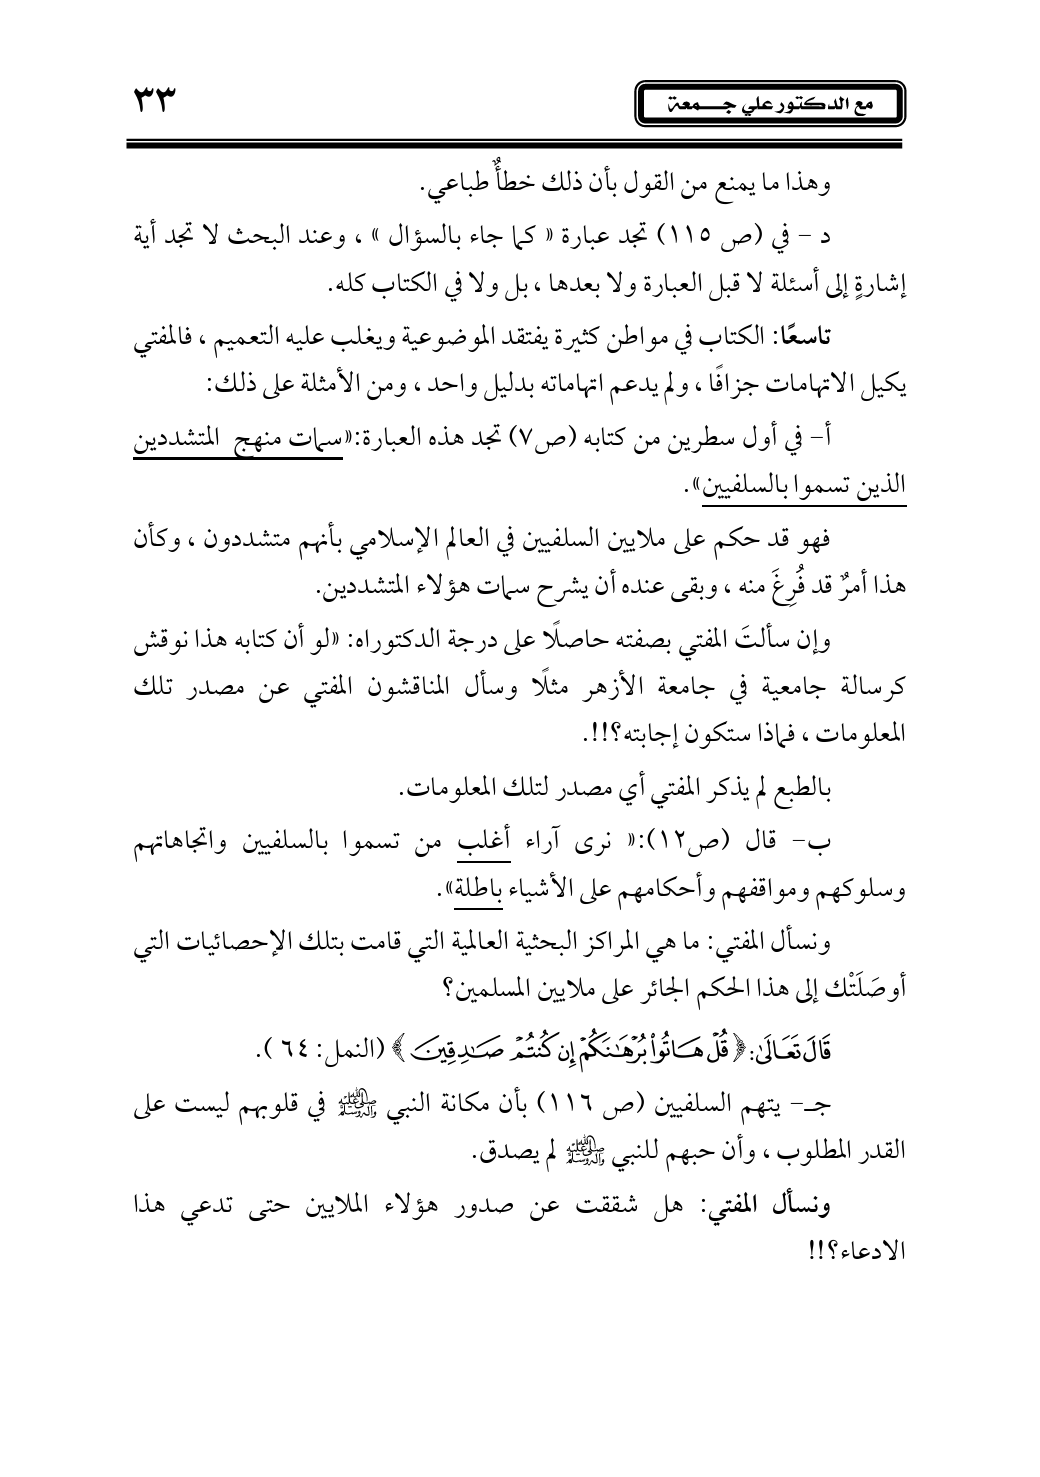 مع الدكتور علي جـــمعة
٣٣
وهذا ما يمنع من القول بأن ذلك خطأٌ طباعي.
د – في (ص ١١٥) تجد عبارة « كما جاء بالسؤال » ، وعند البحث لا تجد أية
إشارةٍ إلى أسئلة لا قبل العبارة ولا بعدها ، بل ولا في الكتاب كله.
تاسعًا: الكتاب في مواطن كثيرة يفتقد الموضوعية ويغلب عليه التعميم ، فالمفتي
يكيل الاتهامات جزافًا ، ولم يدعم اتهاماته بدليل واحد ، ومن الأمثلة على ذلك:
أ– في أول سطرين من كتابه (ص٧) تجد هذه العبارة:«سمات منهج المتشددين
الذين تسموا بالسلفيين».
فهو قد حكم على ملايين السلفيين في العالم الإسلامي بأنهم متشددون ، وكأن
هذا أمرٌ قد فُرِغَ منه ، وبقى عنده أن يشرح سمات هؤلاء المتشددين.
وإن سألتَ المفتي بصفته حاصلًا على درجة الدكتوراه: «لو أن كتابه هذا نوقش
كرسالة جامعية في جامعة الأزهر مثلًا وسأل المناقشون المفتي عن مصدر تلك
المعلومات ، فماذا ستكون إجابته؟!!.
بالطبع لم يذكر المفتي أي مصدر لتلك المعلومات.
ب– قال (ص١٢):« نرى آراء أغلب من تسموا بالسلفيين واتجاهاتهم
وسلوكهم ومواقفهم وأحكامهم على الأشياء باطلة».
ونسأل المفتي: ما هي المراكز البحثية العالمية التي قامت بتلك الإحصائيات التي
أوصَلَتْك إلى هذا الحكم الجائر على ملايين المسلمين؟
قَالَ تَعَالَىٰ: ﴿ قُلْ هَاتُوا۟ بُرْهَـٰنَكُمْ إِن كُنتُمْ صَـٰدِقِينَ ﴾ (النمل: ٦٤ ).
جـ– يتهم السلفيين (ص ١١٦) بأن مكانة النبي ﷺ في قلوبهم ليست على
القدر المطلوب ، وأن حبهم للنبي ﷺ لم يصدق.
ونسأل المفتي: هل شققت عن صدور هؤلاء الملايين حتى تدعي هذا
الادعاء؟!!